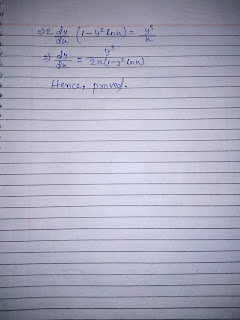 ⇒ 2 dy/dx (1 - y² ln x) = y³/x
⇒ dy/dx = y³/2x(1-y² ln x)
Hence, proved.